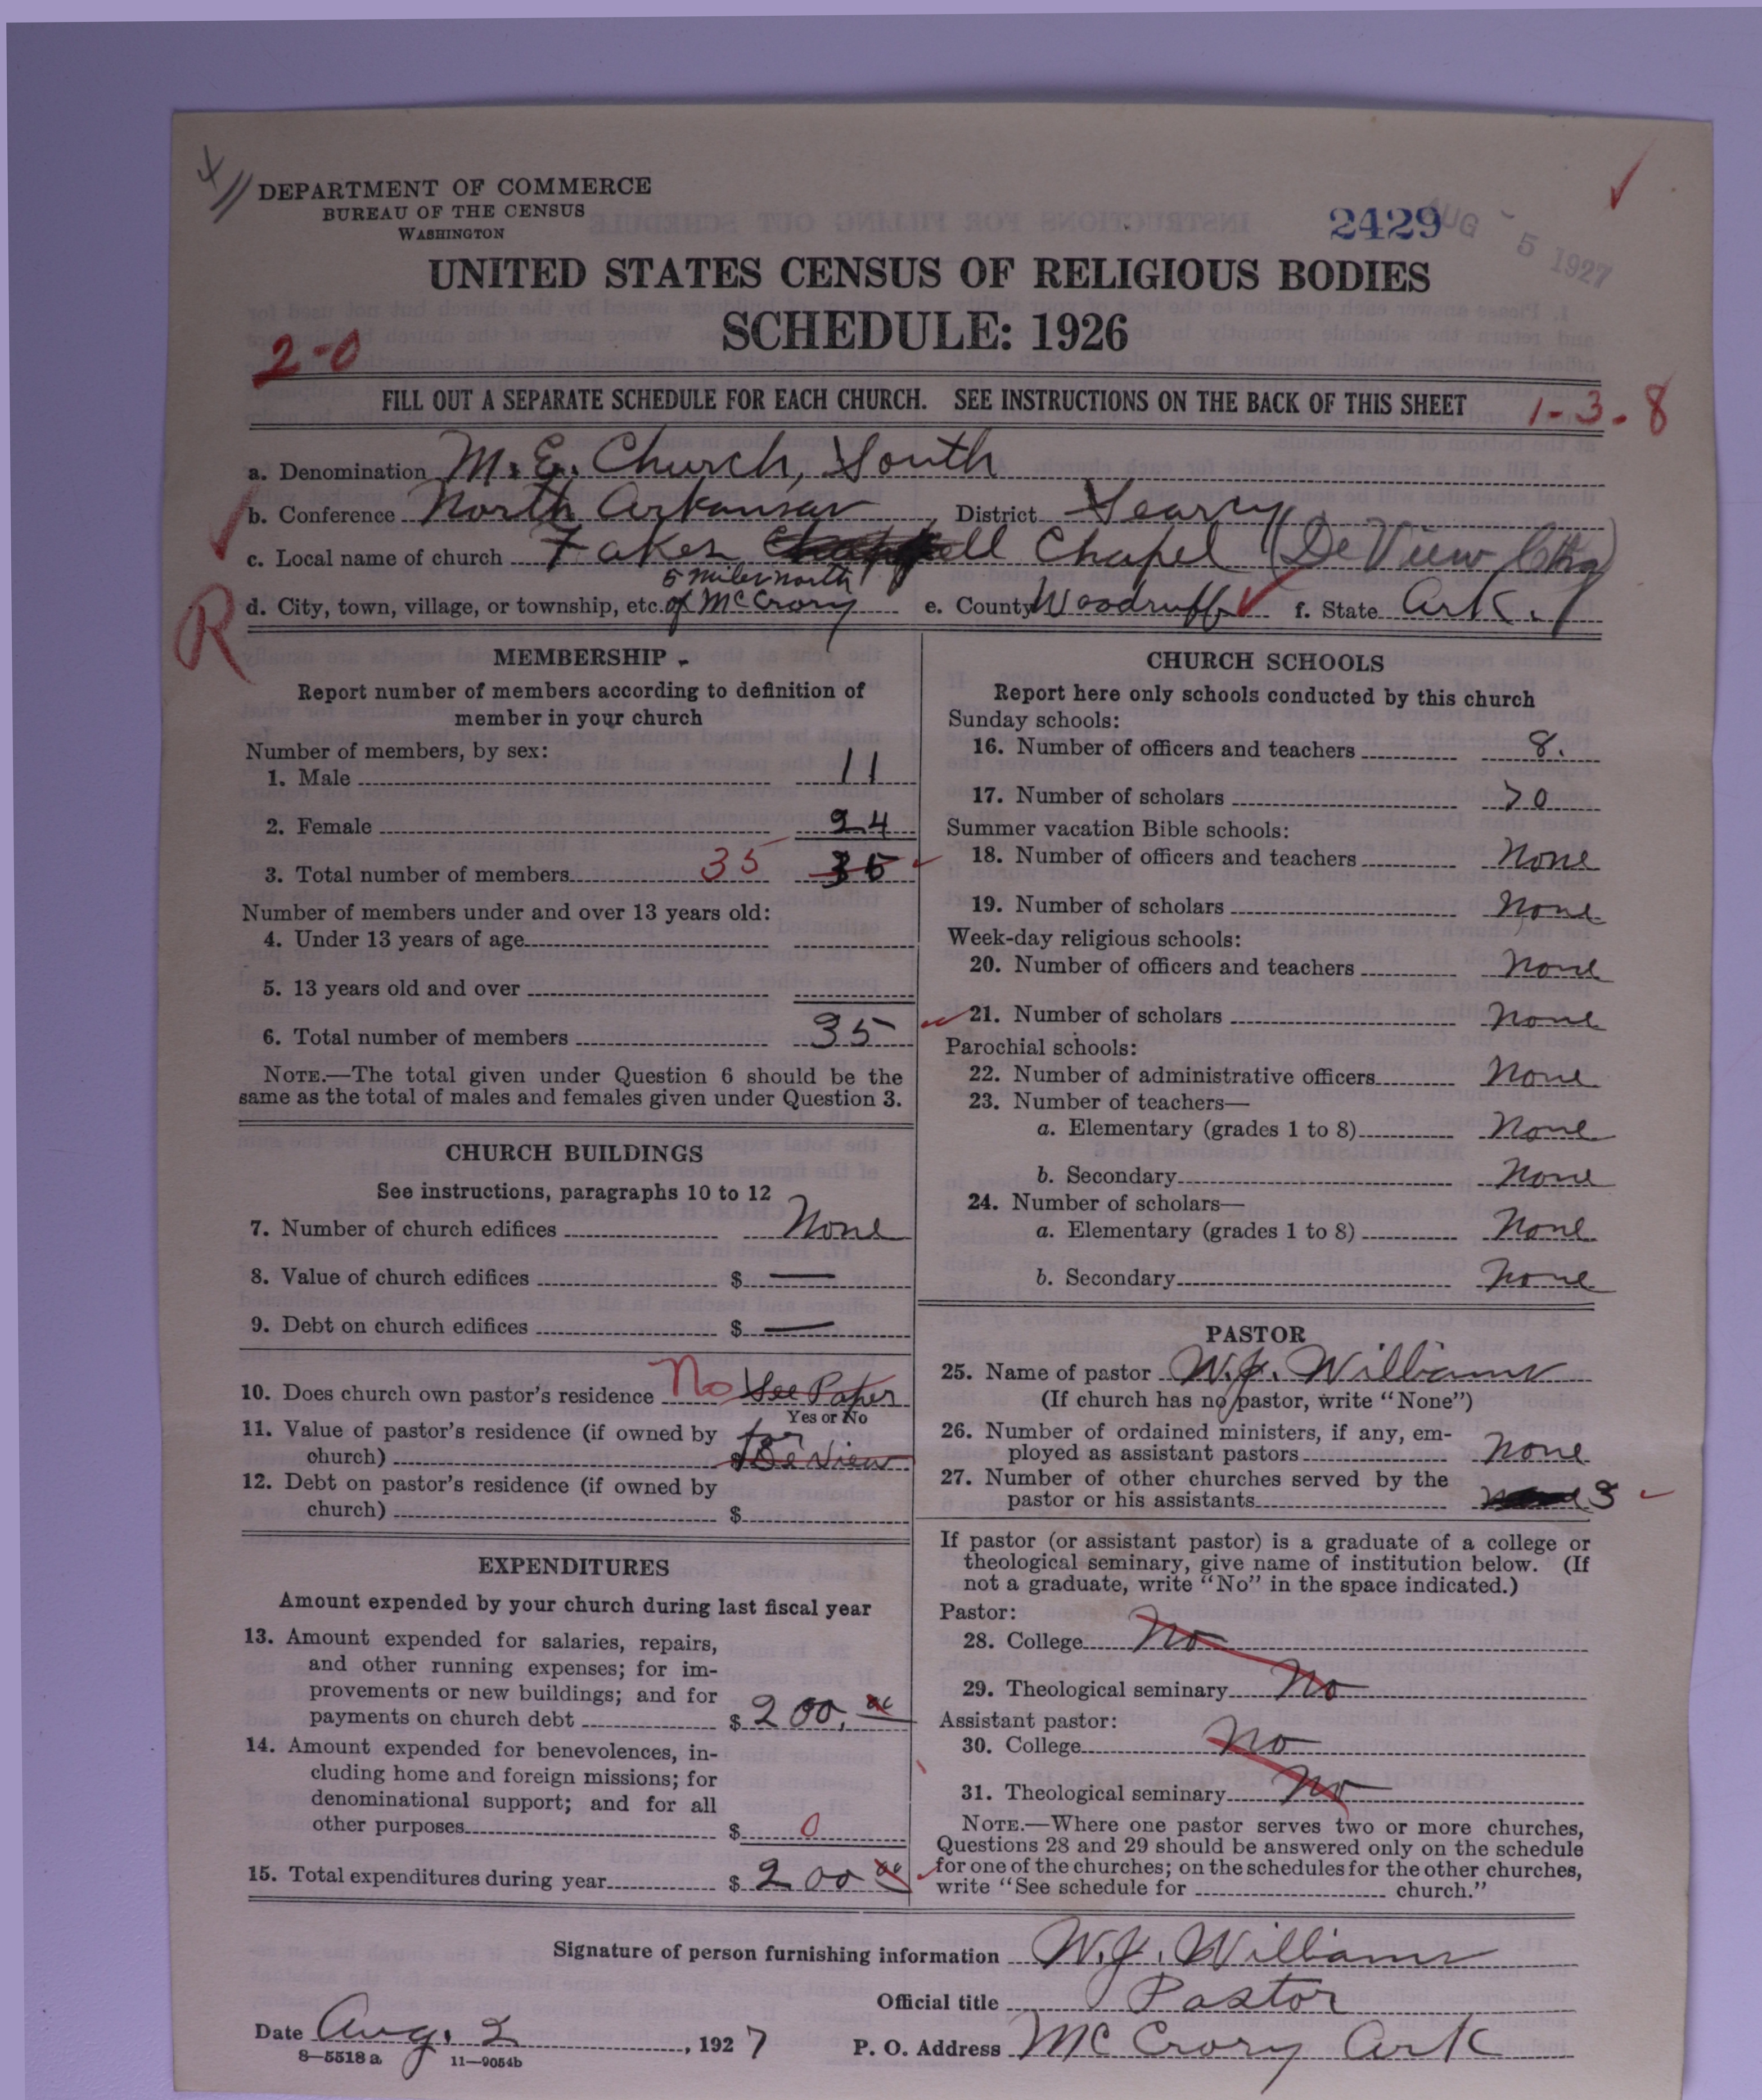 DEPARTMENT OF COMMERCE
BUREAU OF THE CENSUS
WASHINGTON
2429
AUG 5 1927
UNITED STATES CENSUS OF RELIGIOUS BODIES
SCHEDULE: 1926
2-0
FILL OUT A SEPARATE SCHEDULE FOR EACH CHURCH. SEE INSTRUCTIONS ON THE BACK OF THIS SHEET
1-3-8
a. Denomination M. E. Church, South
b. Conference North Arkansas, District Searcy
c. Local name of church Fakes Chapel (De View Chg)
5 miles north
R
d. City, town, village, or township, etc. of McCrory e. County Woodruff f. State Ark.
MEMBERSHIP
Report number of members according to definition of
member in your church
Number of members, by sex:
1. Male 11
2. Female 24
3. Total number of members 35 35
Number of members under and over 13 years old:
4. Under 13 years of age
5. 13 years old and over
6. Total number of members 35
NOTE.—The total given under Question 6 should be the
same as the total of males and females given under Question 3.
CHURCH BUILDINGS
See instructions, paragraphs 10 to 12
7. Number of church edifices None
8. Value of church edifices $ —
9. Debt on church edifices $ —
10. Does church own pastor's residence No See Paper
Yes or No
11. Value of pastor's residence (if owned by for
church) $ De View
12. Debt on pastor's residence (if owned by
church) $
EXPENDITURES
Amount expended by your church during last fiscal year
13. Amount expended for salaries, repairs,
and other running expenses; for im-
provements or new buildings; and for
payments on church debt $ 200.00
14. Amount expended for benevolences, in-
cluding home and foreign missions; for
denominational support; and for all
other purposes $ 0
15. Total expenditures during year $ 200 00
CHURCH SCHOOLS
Report here only schools conducted by this church
Sunday schools:
16. Number of officers and teachers 8.
17. Number of scholars 70
Summer vacation Bible schools:
18. Number of officers and teachers None
19. Number of scholars None
Week-day religious schools:
20. Number of officers and teachers None
21. Number of scholars None
Parochial schools:
22. Number of administrative officers None
23. Number of teachers—
a. Elementary (grades 1 to 8) None
b. Secondary None
24. Number of scholars—
a. Elementary (grades 1 to 8) None
b. Secondary None
PASTOR
25. Name of pastor W. J. Williams
(If church has no pastor, write "None")
26. Number of ordained ministers, if any, em-
ployed as assistant pastors None
27. Number of other churches served by the
pastor or his assistants 3
If pastor (or assistant pastor) is a graduate of a college or
theological seminary, give name of institution below. (If
not a graduate, write "No" in the space indicated.)
Pastor:
28. College No
29. Theological seminary No
Assistant pastor:
30. College No
31. Theological seminary No
NOTE.—Where one pastor serves two or more churches,
Questions 28 and 29 should be answered only on the schedule
for one of the churches; on the schedules for the other churches,
write "See schedule for church."
Signature of person furnishing information W. J. Williams
Official title Pastor
Date Aug. 2, 1927 P. O. Address McCrory Ark
8-5518 a 11-9054b